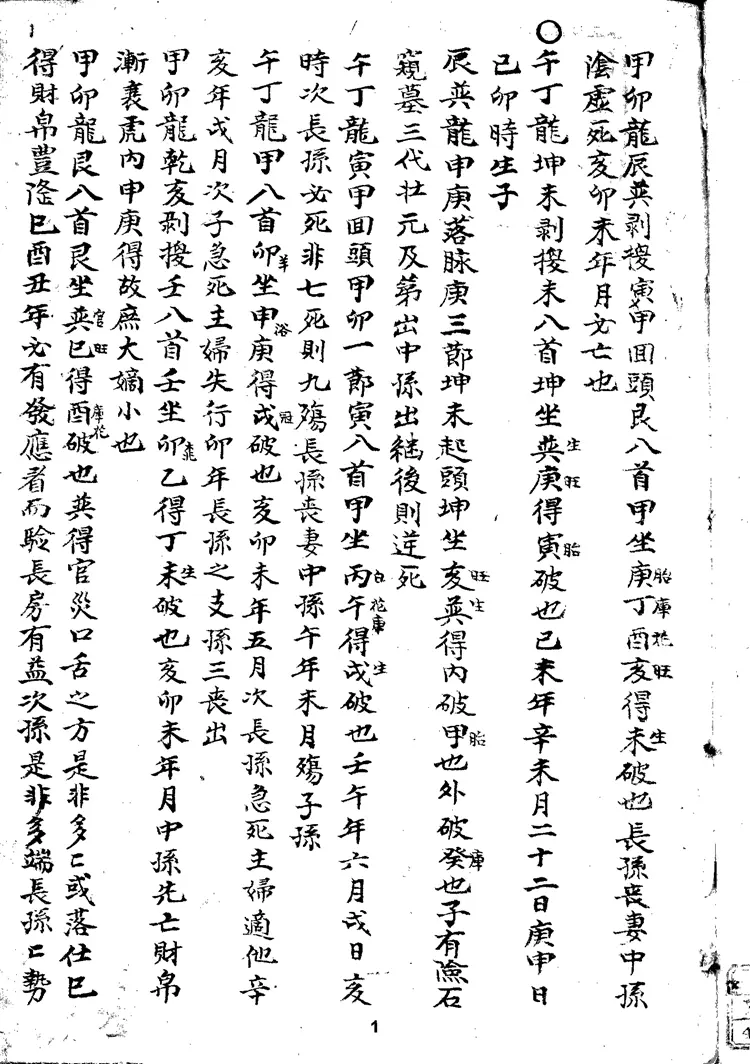 甲卯龍辰巽剥換寅甲回頭艮八首甲坐庚胎丁庫酉花亥旺得未生破也長孫喪妻中孫
陰虛死亥卯未年月必亡也
午丁龍坤未剥換未八首坤坐巽生庚旺得寅胎破也己未年辛未月二十二日庚申日
己卯時生子
辰巽龍申庚落脉庚三節坤未起頭坤坐亥旺巽生得內破甲胎也外破癸庫也子有險石
窺墓三代壮元及第出中孫出継後則逆死
午丁龍寅甲回頭甲卯一節寅八首甲坐丙午得戌生破也壬午年六月戌日亥
時次長孫必死非七死則九殤長孫喪妻中孫午年未月殤子孫
午丁龍甲八首卯坐申庚浴得戌冠破也亥卯未年五月次長孫急死主婦適他辛
亥年戌月次子急死主婦失行卯年長孫之支孫三喪出
甲卯龍乾亥剥換壬八首壬坐卯乙得丁未生破也亥卯未年月中孫先亡財帛
漸衰虎內申庚得故庶大嫡小也
甲卯龍艮八首艮坐巽官巳旺得酉庫花破也巽得官災口舌之方是非多〻或落仕巳
得財帛豊隆巳酉丑年必有發應者而驗長房有益次孫是非多端長孫〻勢
1